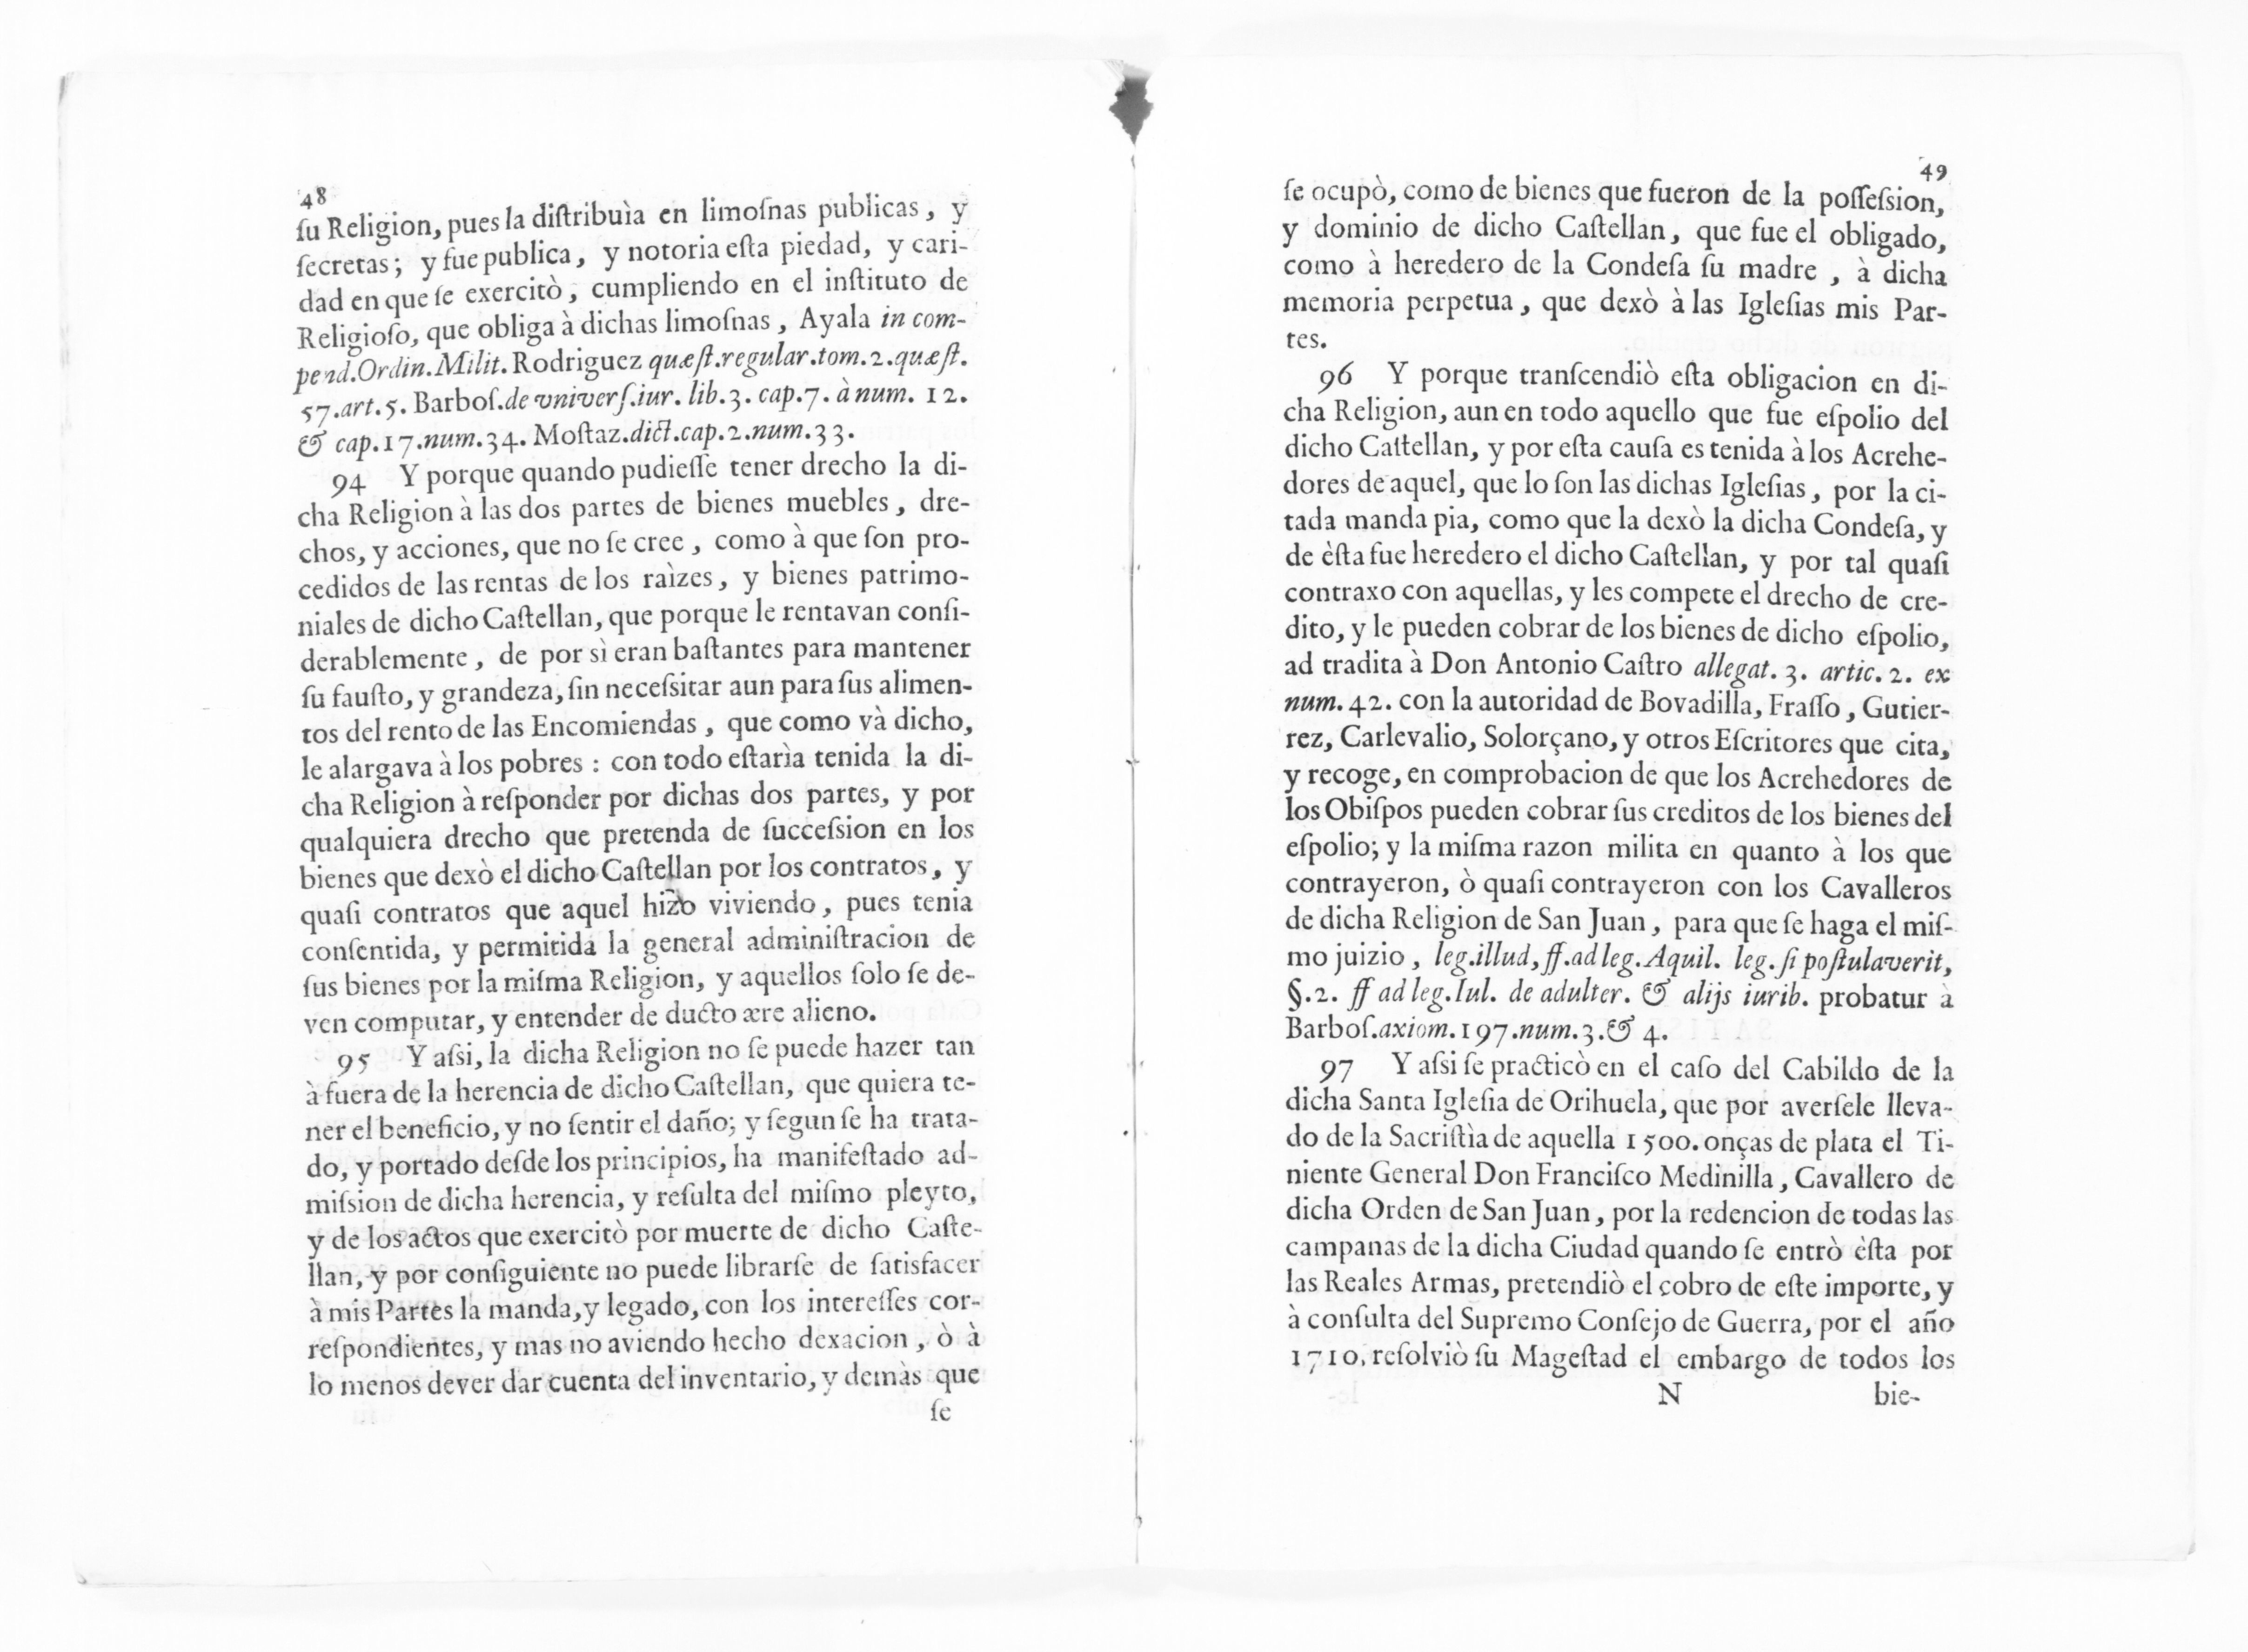 48
ſu Religion, pues la diſtribuìa en limoſnas publicas, y
ſecretas; y fue publica, y notoria eſta piedad, y cari-
dad en que ſe exercitò, cumpliendo en el inſtituto de
Religioſo, que obliga à dichas limoſnas, Ayala in com-
pend.Ordin.Milit. Rodriguez quæſt.regular.tom.2.quæſt.
57.art.5. Barboſ.de univerſ.iur. lib.3. cap.7. à num. 12.
& cap.17.num.34. Moſtaz.dict.cap.2.num.33.
94 Y porque quando pudieſſe tener drecho la di-
cha Religion à las dos partes de bienes muebles, dre-
chos, y acciones, que no ſe cree, como à que ſon pro-
cedidos de las rentas de los raìzes, y bienes patrimo-
niales de dicho Caſtellan, que porque le rentavan conſi-
derablemente, de por sì eran baſtantes para mantener
ſu fauſto, y grandeza, ſin neceſsitar aun para ſus alimen-
tos del rento de las Encomiendas, que como và dicho,
le alargava à los pobres : con todo eſtarìa tenida la di-
cha Religion à reſponder por dichas dos partes, y por
qualquiera drecho que pretenda de ſucceſsion en los
bienes que dexò el dicho Caſtellan por los contratos, y
quaſi contratos que aquel hizo viviendo, pues tenia
conſentida, y permitida la general adminiſtracion de
ſus bienes por la miſma Religion, y aquellos ſolo ſe de-
ven computar, y entender de ducto ære alieno.
95 Y aſsi, la dicha Religion no ſe puede hazer tan
à fuera de la herencia de dicho Caſtellan, que quiera te-
ner el beneficio, y no ſentir el daño; y ſegun ſe ha trata-
do, y portado deſde los principios, ha manifeſtado ad-
miſsion de dicha herencia, y reſulta del miſmo pleyto,
y de los actos que exercitò por muerte de dicho Caſte-
llan, y por conſiguiente no puede librarſe de ſatisfacer
à mis Partes la manda, y legado, con los intereſſes cor-
reſpondientes, y mas no aviendo hecho dexacion, ò à
lo menos dever dar cuenta del inventario, y demàs que
ſe
49
ſe ocupò, como de bienes que fueron de la poſſeſsion,
y dominio de dicho Caſtellan, que fue el obligado,
como à heredero de la Condeſa ſu madre, à dicha
memoria perpetua, que dexò à las Igleſias mis Par-
tes.
96 Y porque tranſcendiò eſta obligacion en di-
cha Religion, aun en todo aquello que fue eſpolio del
dicho Caſtellan, y por eſta cauſa es tenida à los Acrehe-
dores de aquel, que lo ſon las dichas Igleſias, por la ci-
tada manda pia, como que la dexò la dicha Condeſa, y
de èſta fue heredero el dicho Caſtellan, y por tal quaſi
contraxo con aquellas, y les compete el drecho de cre-
dito, y le pueden cobrar de los bienes de dicho eſpolio,
ad tradita à Don Antonio Caſtro allegat. 3. artic. 2. ex
num. 42. con la autoridad de Bovadilla, Fraſſo, Gutier-
rez, Carlevalio, Solorçano, y otros Eſcritores que cita,
y recoge, en comprobacion de que los Acrehedores de
los Obiſpos pueden cobrar ſus creditos de los bienes del
eſpolio; y la miſma razon milita en quanto à los que
contrayeron, ò quaſi contrayeron con los Cavalleros
de dicha Religion de San Juan, para que ſe haga el miſ-
mo juizio, leg.illud, ff.ad leg.Aquil. leg. ſi poſtulaverit,
§.2. ff ad leg.Iul. de adulter. & alijs iurib. probatur à
Barboſ.axiom.197.num.3.& 4.
97 Y aſsi ſe practicò en el caſo del Cabildo de la
dicha Santa Igleſia de Orihuela, que por averſele lleva-
do de la Sacriſtìa de aquella 1500. onças de plata el Ti-
niente General Don Franciſco Medinilla, Cavallero de
dicha Orden de San Juan, por la redencion de todas las
campanas de la dicha Ciudad quando ſe entrò èſta por
las Reales Armas, pretendiò el cobro de eſte importe, y
à conſulta del Supremo Conſejo de Guerra, por el año
1710. reſolviò ſu Mageſtad el embargo de todos los
N bie-